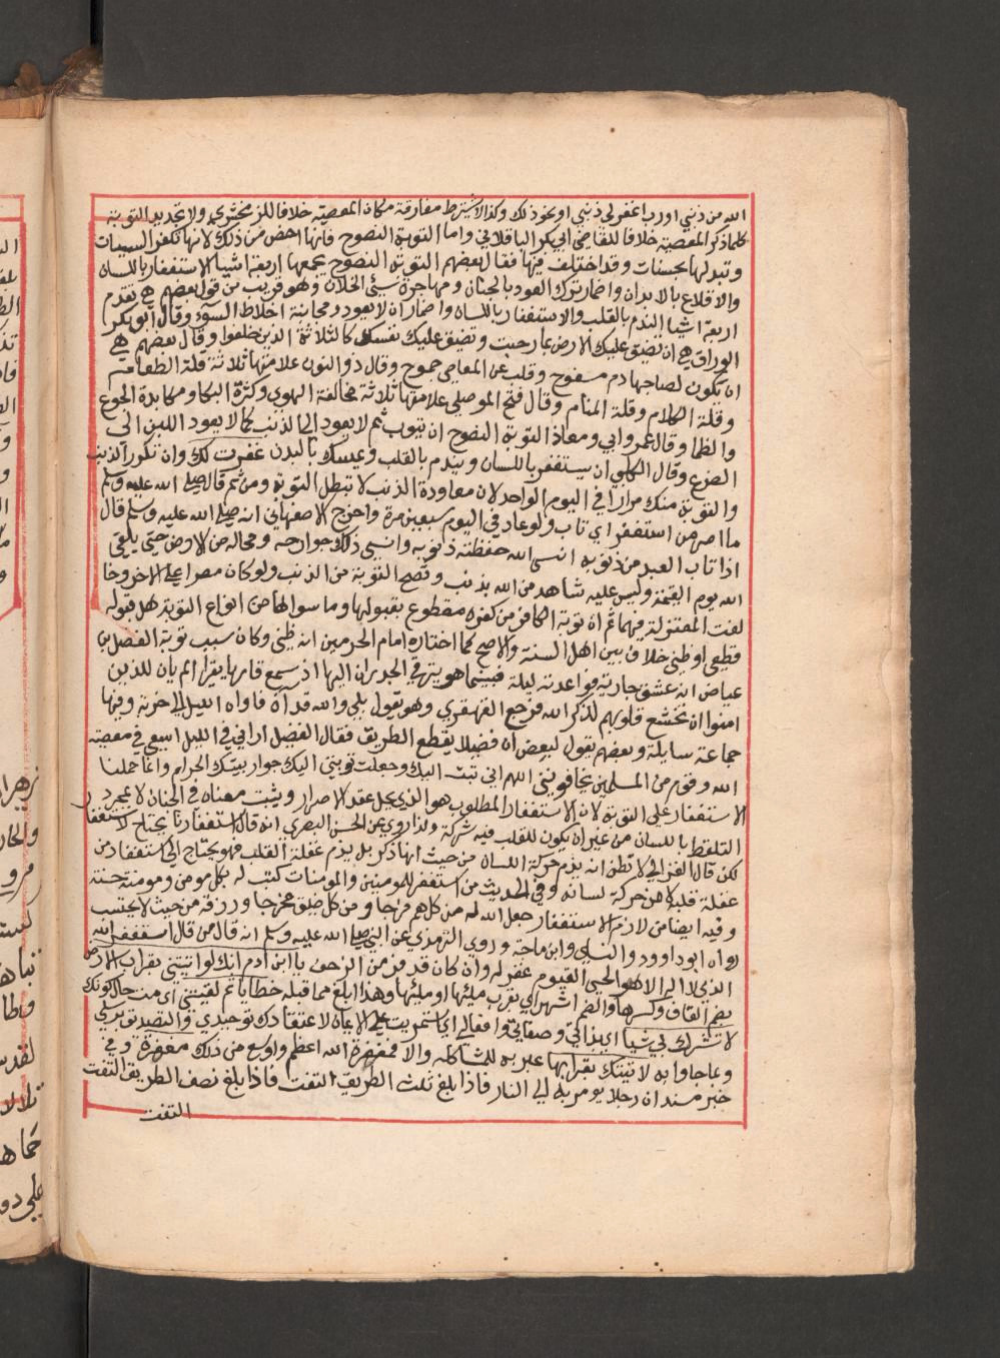 الله من ذنبي او رب اغفر لي ذنبي او نحو ذلك وكذا لا يشترط مفارقة مكان المعصية خلافا للزمخشري ولا تجديد التوبة
كلما ذكر المعصية خلافا للقاضي ابي بكر الباقلاني واما التوبة النصوح فانها اخص من ذلك لانها تكفر السيئات
وتبدلها بحسنات وقد اختلف فيها فقال بعضهم التوبة النصوح يجمعها اربعة اشيا الاستغفار باللسان
والاقلاع بالابدان واضمار ترك العود بالجنان ومهاجرة سيئ الخلان وهو قريب من قول بعضهم هي تقدم
اربعة اشيا الندم بالقلب والاستغفار باللسان واضمار ان لا يعود ومجانبة اخلاط السوء وقال ابو بكر
الوراق هي ان تضيق عليك الارض بما رحبت وتضيق عليك نفسك كالثلاثة الذين خلفوا وقال بعضهم هي
ان يكون لصاحبها دم مسفوح وقلب عن المعاصي جموح وقال ذو النون علامتها ثلاثة قلة الطعام
وقلة الكلام وقلة المنام وقال فتح الموصلي علامتها ثلاثة مخالفة الهوي وكثرة البكا ومكابدة الجوع
والظما وقال عمر وابي ومعاذ التوبة النصوح ان يتوب ثم لا يعود الي الذنب كما لا يعود اللبن الى
الضرع وقال الكلبي ان يستغفر باللسان ويندم بالقلب ويمسك بالبدن غفرت لك وان تكرر الذنب
والتوبة منك مرارا في اليوم الواحد لان معاودة الذنب لا تبطل التوبة ومن ثم قال صلى الله عليه وسلم
ما اصر من استغفر اي تاب ولو عاد في اليوم سبعين مرة واخرج الاصفهاني انه صلى الله عليه وسلم قال
اذا تاب العبد من ذنوبه انسى الله حفظته ذنوبه وانسي ذلك جوارحه ومحاله من الارض حتى يلقي
الله يوم القيمة وليس عليه شاهد من الله بذنب وتصح التوبة من الذنب ولو كان مصرا على الاخر وخا
لفت المعتزلة فيهما ثم ان توبة الكافر من كفره مقطوع بقبولها وما سواها من انواع التوبة هل قبوله
قطعي او ظني خلاف بين اهل السنة والاصح كما اختاره امام الحرمين انه ظني وكان سبب توبة الفضيل بن
عياض انه عشق جارية فواعدته ليلة فبينما هو يرتقي الجدران اليها اذ سمع قاريا يقرا الم يان للذين
امنوا ان تخشع قلوبهم لذكر الله فرجع القهقري وهو يقول بلي والله قد آن فاواه الليل الي خربة وفيها
جماعة سايلة وبعضهم يقول لبعض ان فضيلا يقطع الطريق فقال الفضيل اراني في الليل اسعي في معصية
الله وقوم من المسلمين يخافوني اللهم اني تبت اليك وجعلت توبتي اليك جوار بيتك الحرام وانما حملنا
الاستغفار على التوبة لان الاستغفار المطلوب هو الذي يحل عقد الاصرار ويثبت معناه في الجنان لا مجرد
التلفظ باللسان من غير ان يكون للقلب فيه شركة ولذا روي عن الحسن البصري انه قال استغفارنا يحتاج لاستغفار
لكن قال الغزالي لا تظن انه يذم حركة اللسان من حيث انها ذكر بل يذم غفلة القلب فهو يحتاج الي استغفار من
غفلة قلبه لا من حركة لسانه وفي الحديث من استغفر للمومنين والمومنات كتب له بكل مومن ومومنة حسنة
وفيه ايضا من لازم الاستغفار جعل الله له من كل هم فرجا ومن كل ضيق مخرجا ورزقه من حيث لا يحتسب
رواه ابو داوود والنساي وابن ماجة وروي الترمذي عن النبي صلى الله عليه وسلم انه قال من قال استغفر الله
الذي لا اله الا هو الحي القيوم غفر له وان كان قد فر من الزحف يا ابن ادم انك لو اتيتني بقراب الارض
بضم القاف وكسرها والضم اشهر اي بقرب ملئها او ملئها وهذا ابلغ مما قبله خطايا ثم لقيتني اي مت حال كونك
لا تشرك بي شيا اي بذاتي وصفاتي وافعالي اي استمريت على الايمان لاعتقادك توحيدي والتصديق برسلي
وبما جاوا به لاتيتك بقرابها عبر به للمشاكلة والا فمغفرة الله اعظم واوسع من ذلك مغفرة وفي
خبر مسند ان رجلا يومر به الي النار فاذا بلغ ثلث الطريق التفت فاذا بلغ نصف الطريق التفت
التفت